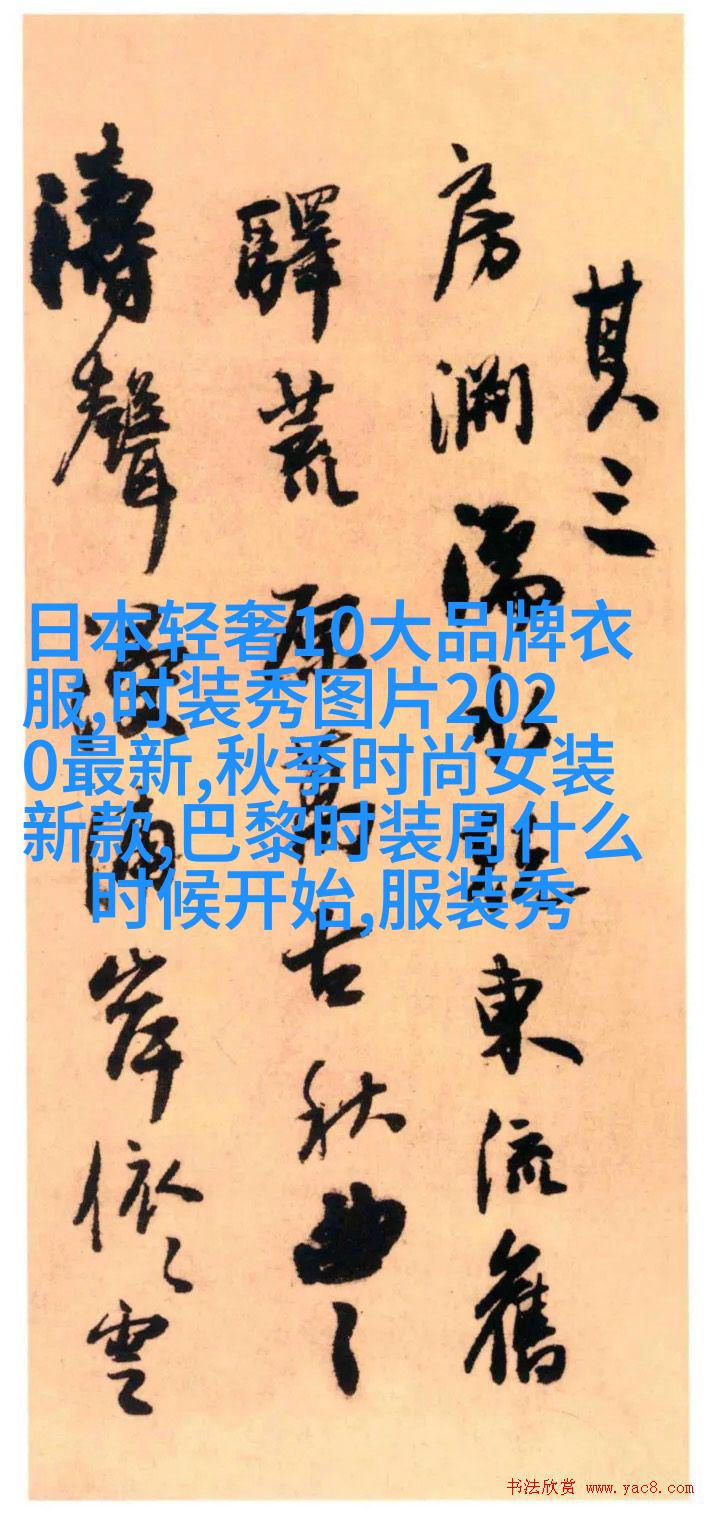 其三
房淵濡水東流舊
驛荒原萬古秋曲〻
濤聲岸依〻雲
日本轻奢10大品牌衣
服,时装秀图片202
0最新,秋季时尚女装
新款,巴黎时装周什么
时候开始,服装秀
书法欣赏 www.yac8.com